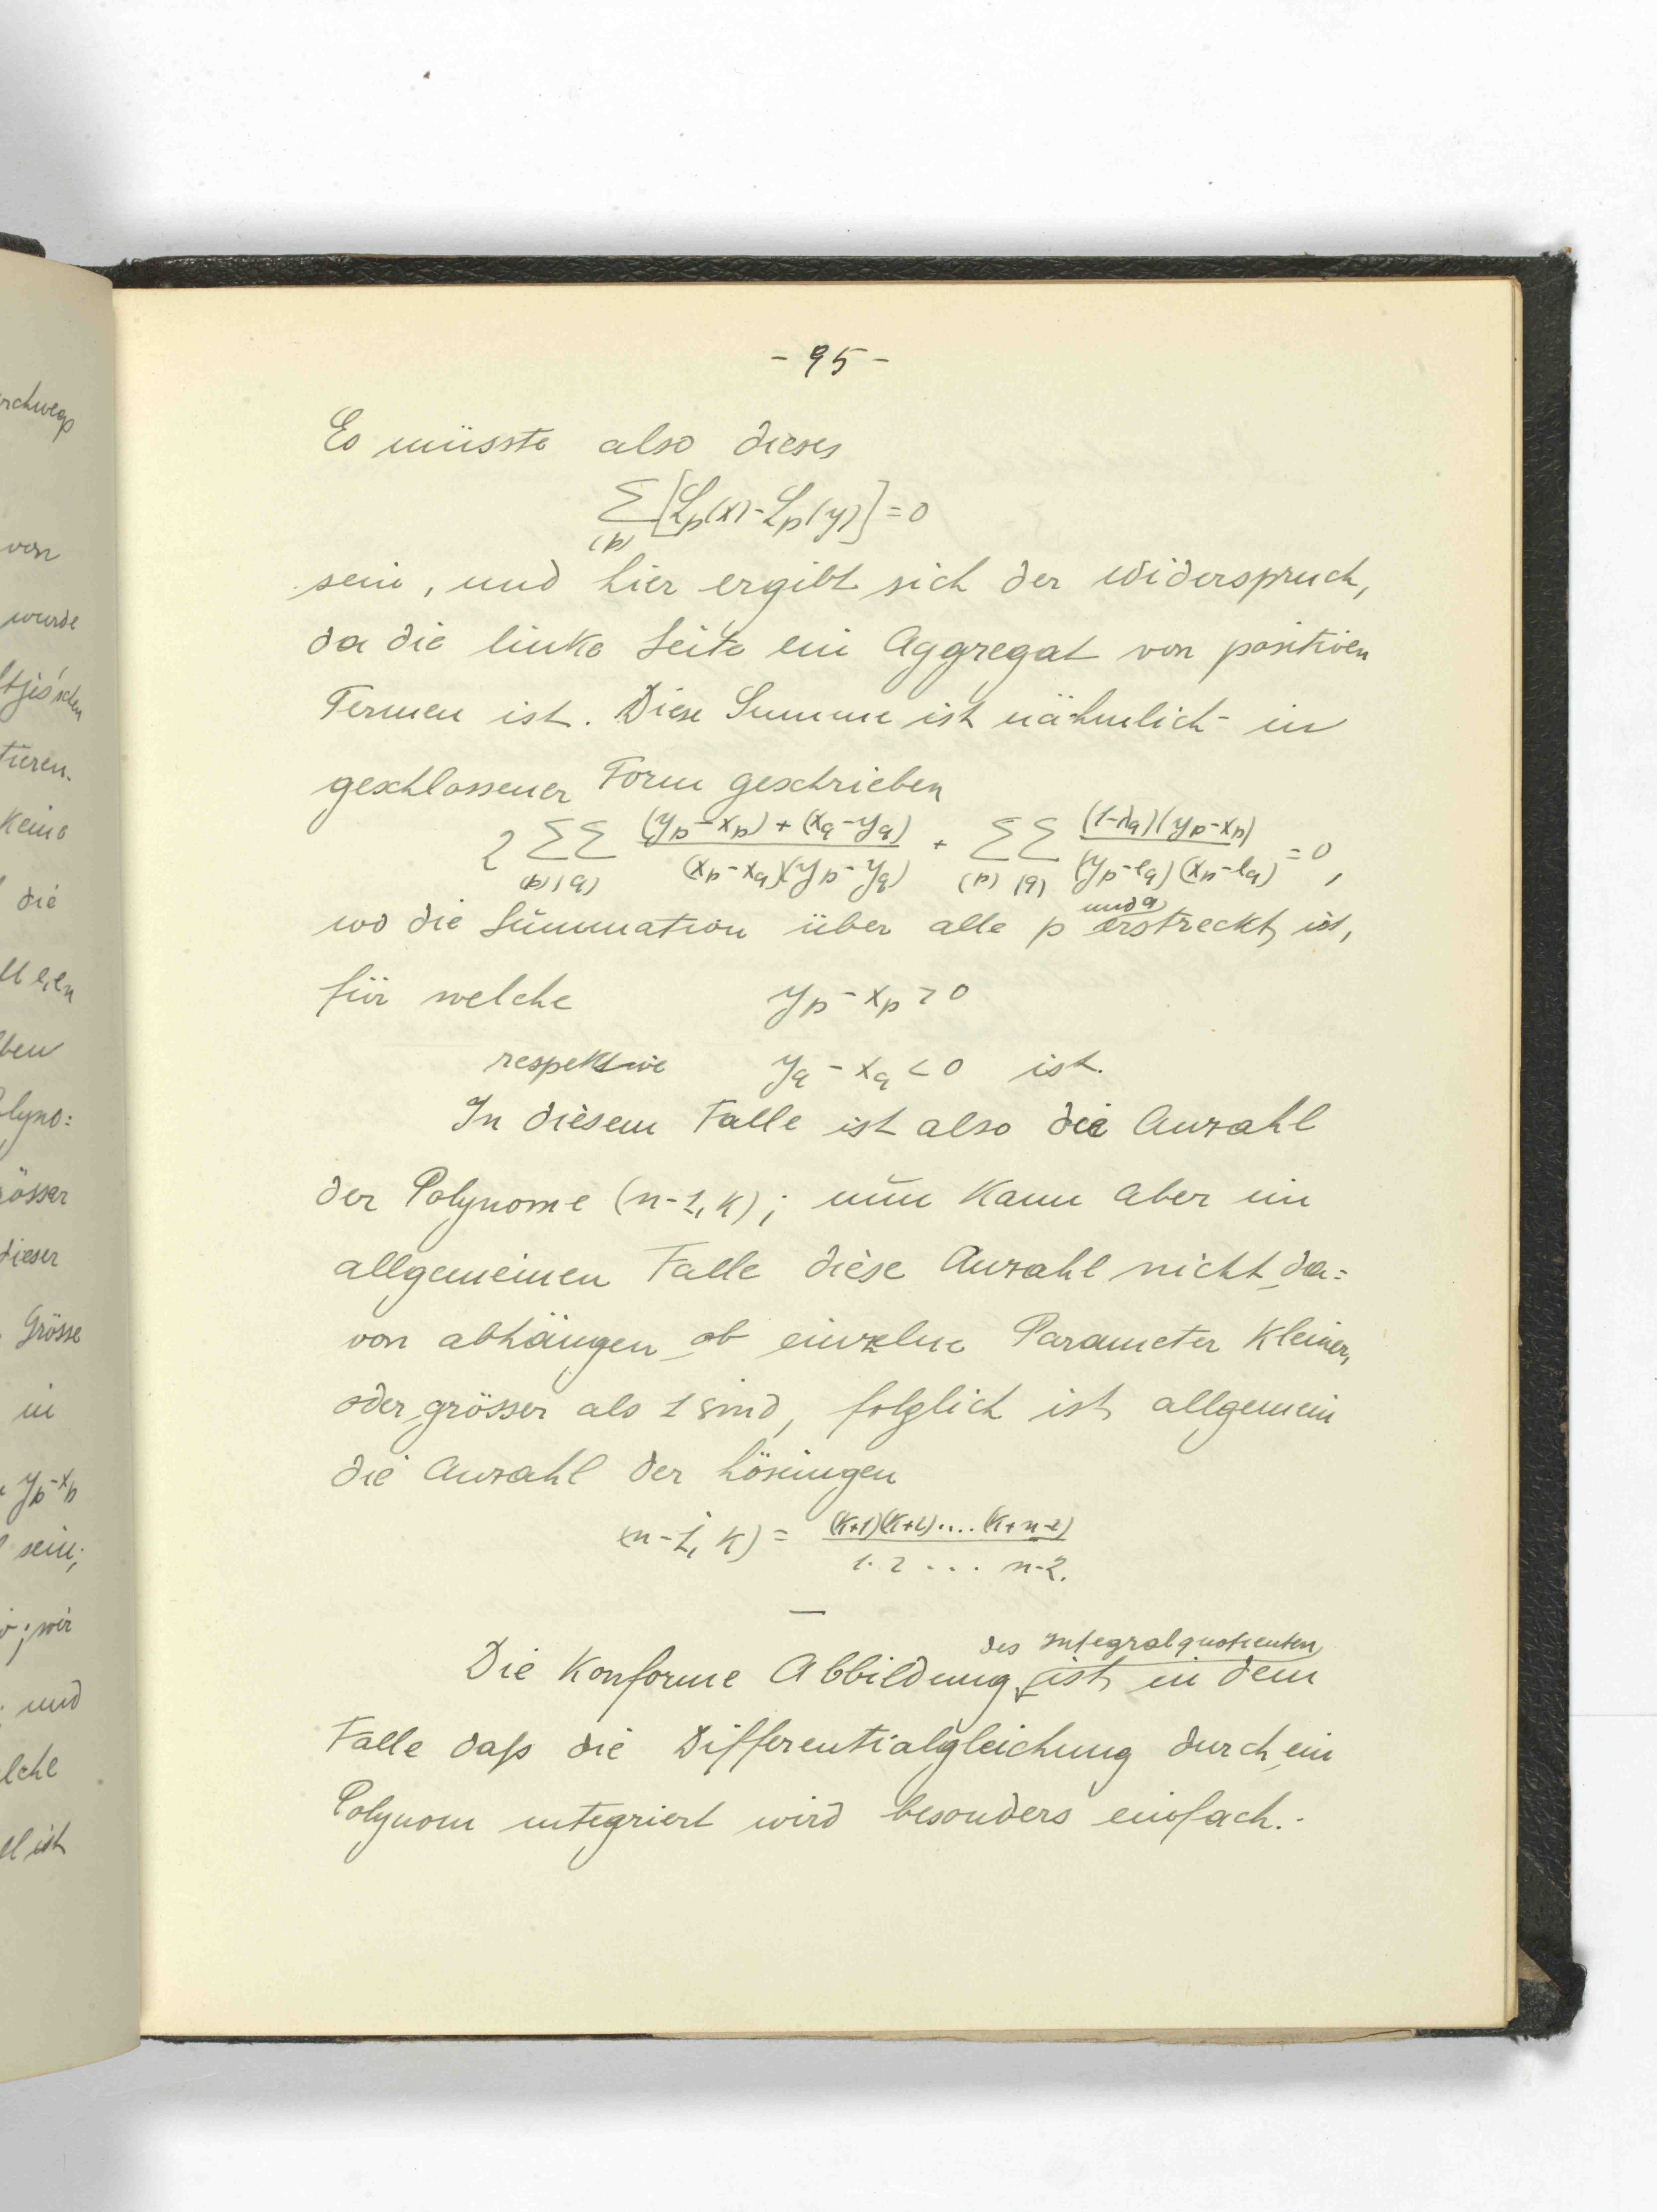 rchwegs
von
wurde
tieren.
keine
die
ben
lyno:
össer
dieser
Grösse
in
y_p-x_p
sein;
; wir
und
lche
ist
- 95 -
Es müsste also dieses
∑_(p) [ℒ_p(x) - ℒ_p(y)] = 0
sein, und hier ergibt sich der Widerspruch,
da die linke Seite ein Aggregat von positiven
Termen ist. Diese Summe ist nähmlich - in
geschlossener Form geschrieben
2 ∑_(p) ∑_(q) ((y_p - x_p) + (x_q - y_q)) / ((x_p - x_q)(y_p - y_q)) + ∑_(p) ∑_(q) ((1-λ_q)(y_p - x_p)) / ((y_p - e_q)(x_p - e_q)) = 0,
und q
wo die Summation über alle p erstreckt ist,
für welche y_p - x_p > 0
respektive y_q - x_q < 0 ist.
In diesem Falle ist also die Anzahl
der Polynome (n-1, k); nun kann aber im
allgemeinen Falle diese Anzahl nicht da=
von abhängen ob einzelne Parameter kleiner,
oder grösser als 1 sind, folglich ist allgemein
die Anzahl der Lösungen
(n-1, k) = ((k+1)(k+2)....(k+n-2)) / (1·2 ... n-2.)
des Integralquotienten
Die konforme Abbildung ist in dem
Falle daß die Differentialgleichung durch ein
Polynom integriert wird besonders einfach.-